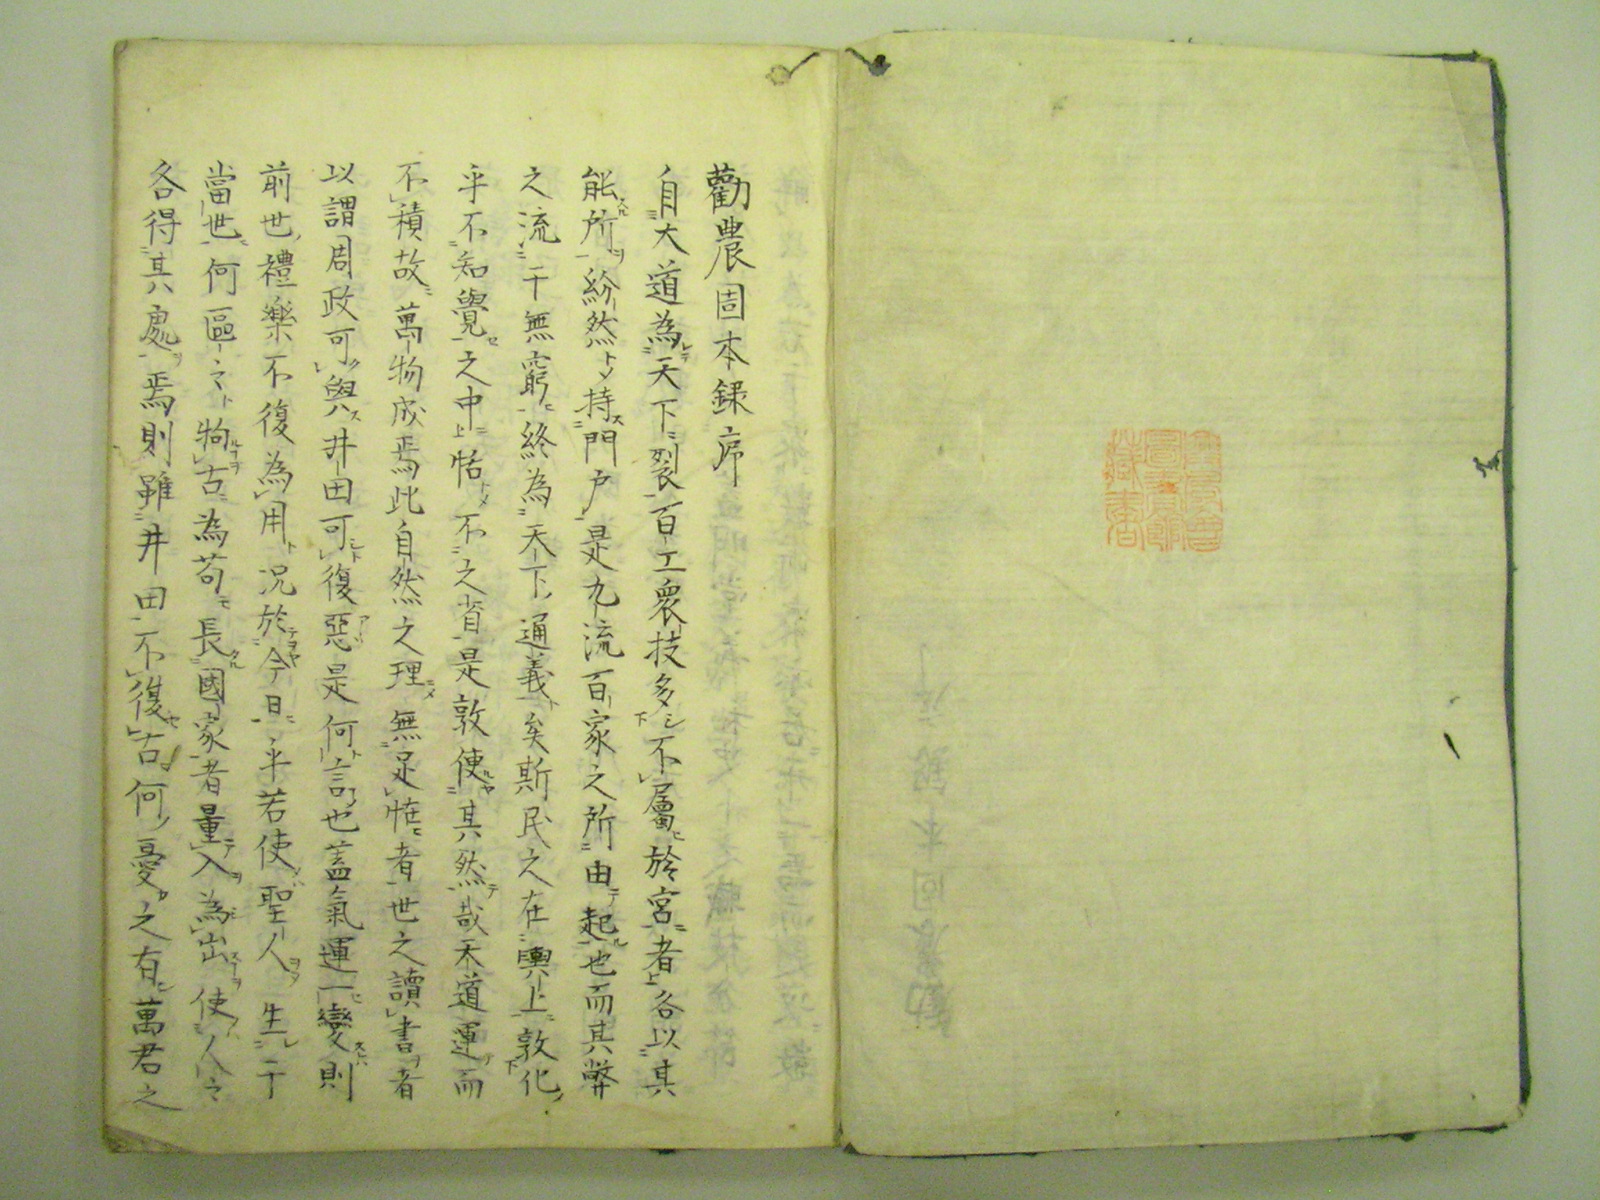 勸農固本錄序
自大道為天下裂百工衆技多不屬於宮者各以其
能所紛然持門戸是九流百家之所由起也而其弊
之流于無窮終為天下通義矣斯民之在輿上敦化
乎不知覺之中恬不之省是敦使其然哉天道運而
不積故萬物成焉此自然之理無足恠者世之讀書者
以謂周政可興井田可復惡是何言也蓋氣運一變則
前世禮樂不復為用況於今日乎若使聖人生于
當世何區〻拘古為苟長國家者量入為出使人〻
各得其處焉則雖井田不復古何憂之有萬君之